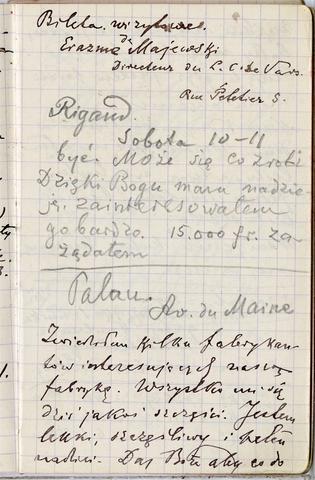 Bileta wizytowe.
Erazm de Majewski
Directeur du L. C. de Vars.
Rue Peletier 5.
Rigaud.
Sobota 10-11
być. Może się co zrobi
Dzięki Bogu mam nadzie-
ję. Zainteresowałem
go bardzo. 15.000 fr. za-
żądałem
Palau.
Av. du Maine
Zwiedziłem kilka fabrykan-
tów interesujących naszą
fabrykę. Wszystko mi się
dziś jakoś szczęści. Jestem
lekki, szczęśliwy i pełen
nadziei. Daj Boże aby co do